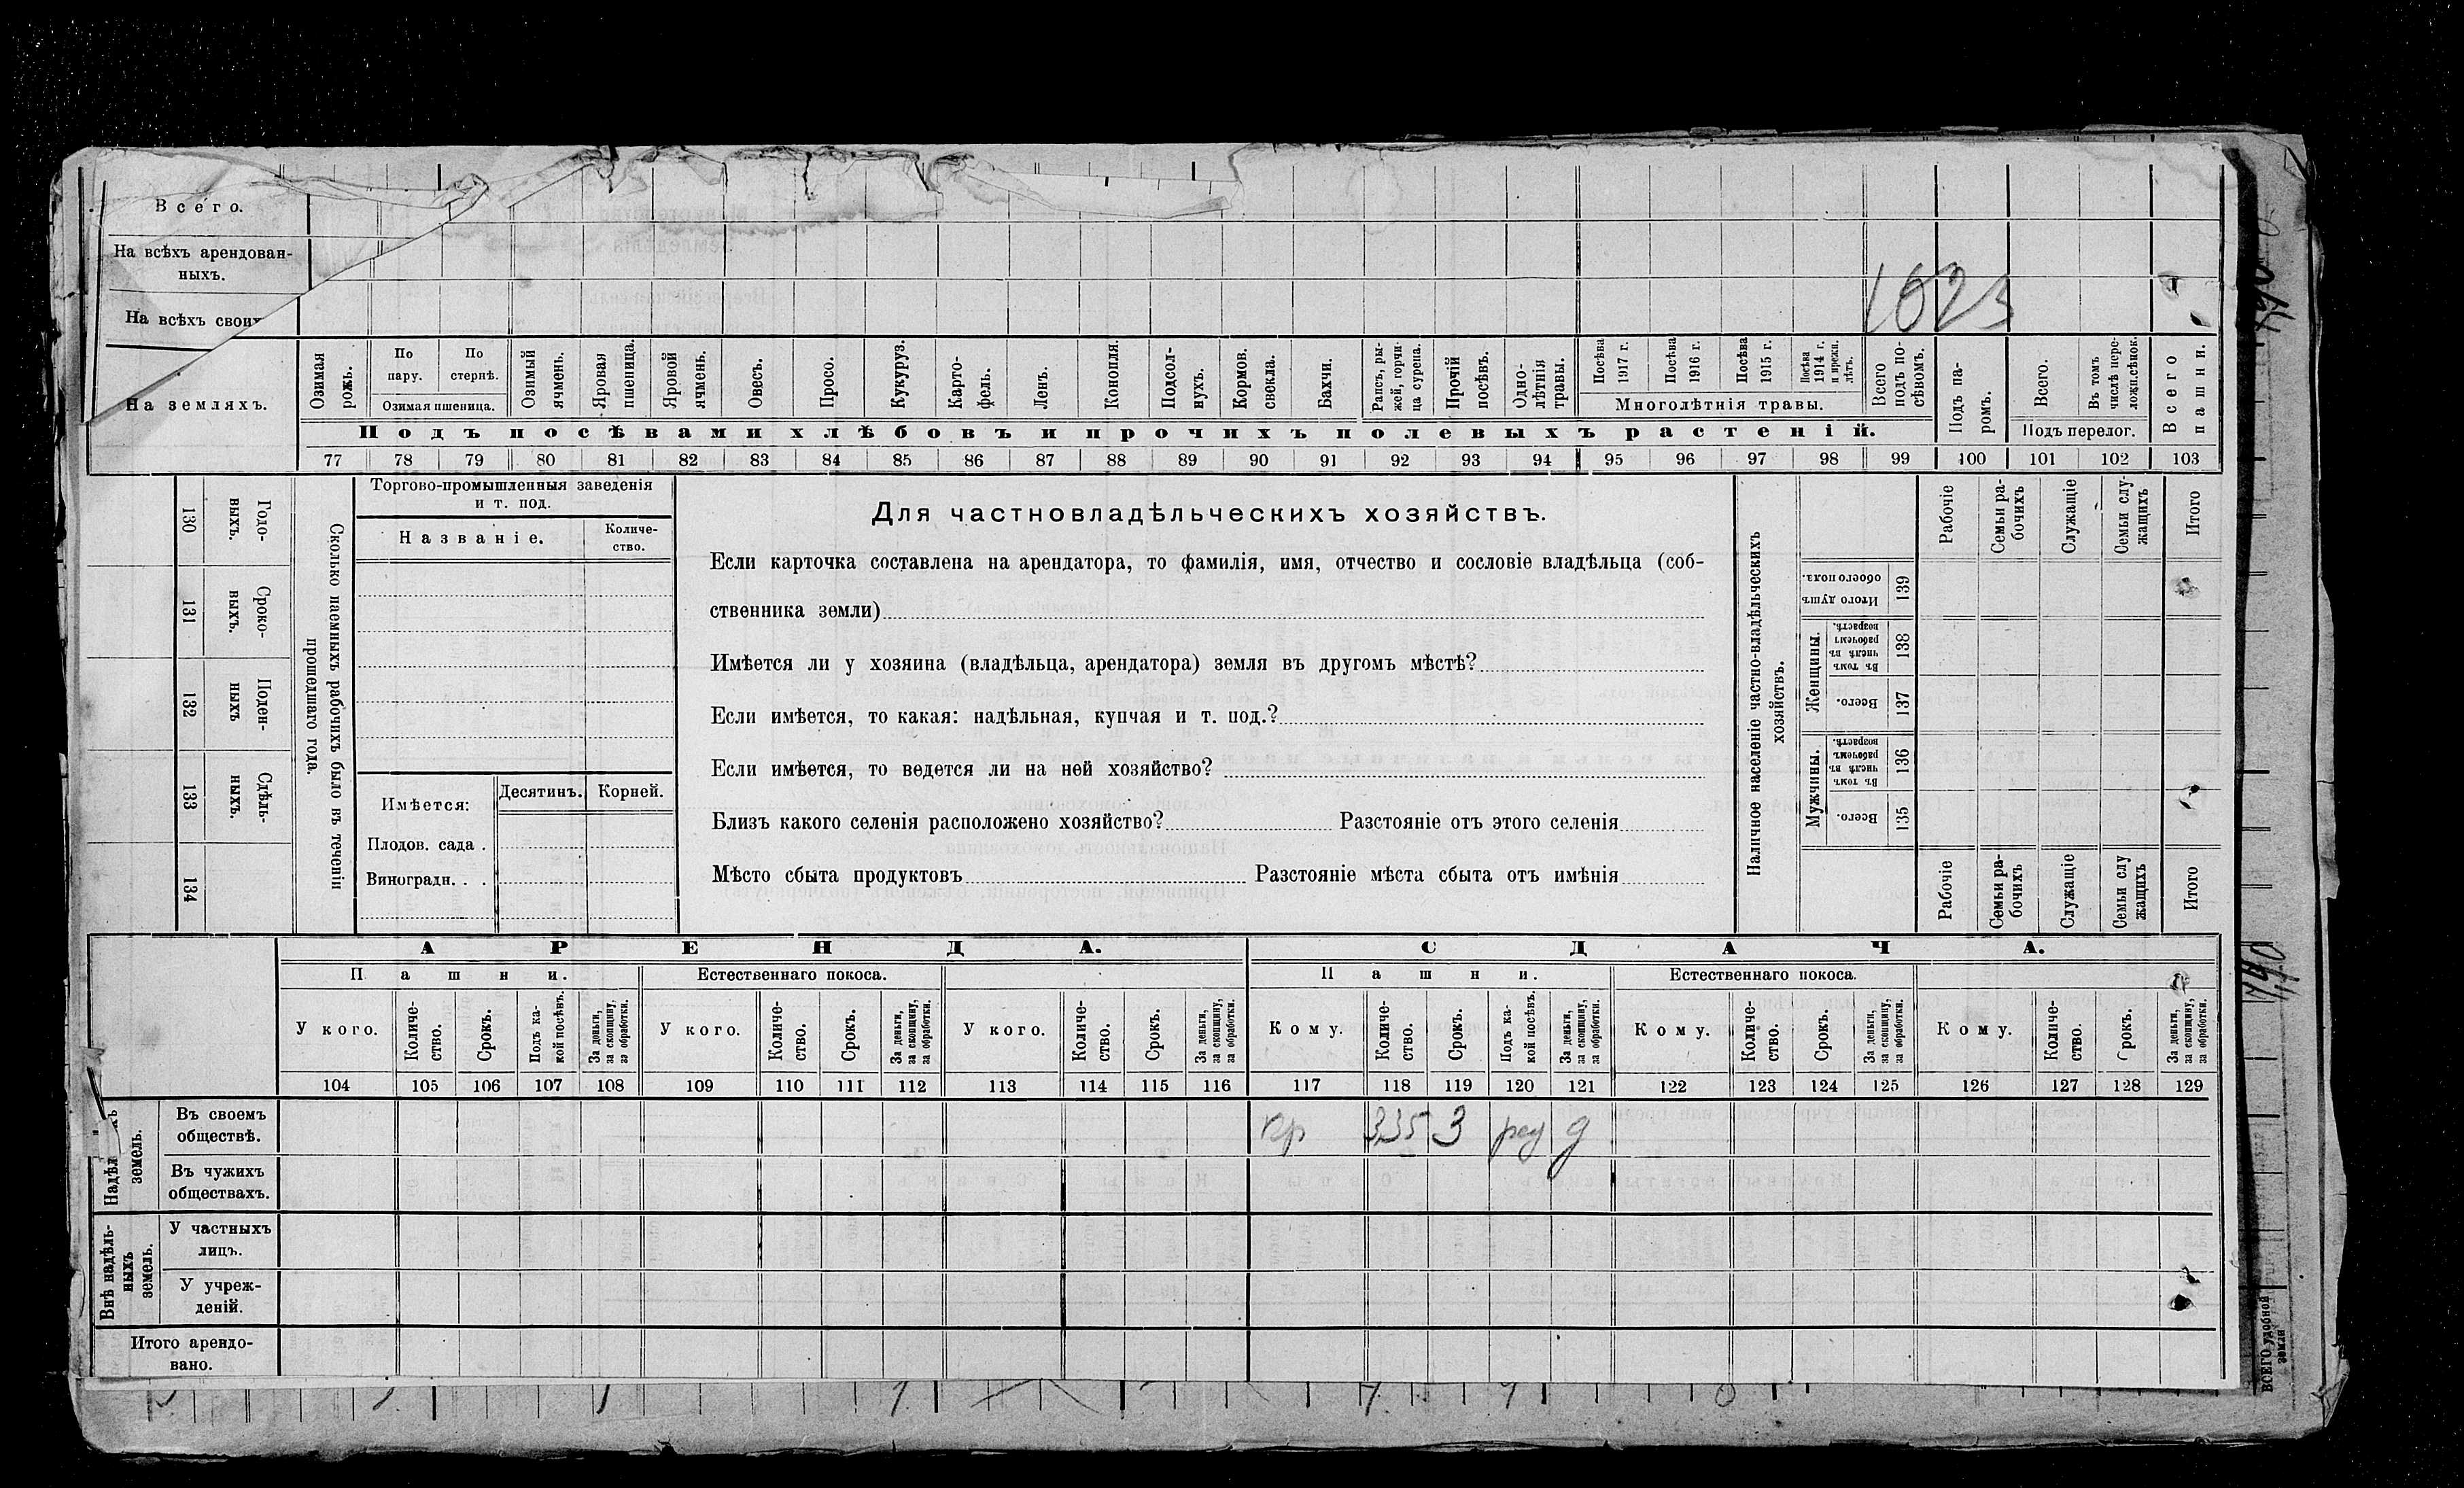 Всего.
На всѣхъ арендован-
ныхъ.
На всѣхъ своих
1023
На земляхъ.
Озимая рожь.
По пару.
По стернѣ.
Озимая пшеница.
Озимый ячмень.
Яровая пшеница.
Яровой ячмень.
Овесъ.
Просо.
Кукуруз.
Карто-
фель.
Ленъ.
Конопля.
Подсол-
нухъ.
Кормов. свекла.
Бахчи.
Рапсъ, ры-
жей, горчи-
ца сурепа.
Прочій посѣвъ.
Одно-
лѣтнія
травы.
Посѣва 1917 г.
Посѣва 1916 г.
Посѣва 1915 г.
Посѣва 1914 г. и прежн. лѣтъ.
Многолѣтнія травы.
Всего подъ по-
сѣвомъ.
Подъ па-
ромъ.
Всего.
Въ томъ числѣ пере-
ложн.сѣнок.
Подъ перелог.
Всего пашни.
Подъ посѣвами хлѣбовъ и прочихъ полевыхъ растеній.
77 78 79 80 81 82 83 84 85 86 87 88 89 90 91 92 93 94 95 96 97 98 99 100 101 102 103
Годо-
ныхъ.
130
Сроко-
ныхъ.
131
Поден-
ныхъ
132
Сдѣль-
ныхъ.
133
134
Сколько наемныхъ рабочихъ было въ теченіи
прошедшаго года.
Торгово-промышленныя заведенія
и т. под.
Названіе.
Количе-
ство.
Имѣется:
Десятинъ.
Корней.
Плодов. сада .
Виноградн. . .
Для частновладѣльческихъ хозяйствъ.
Если карточка составлена на арендатора, то фамилія, имя, отчество и сословіе владѣльца (соб-
ственника земли)
Имѣется ли у хозяина (владѣльца, арендатора) земля въ другомъ мѣстѣ?
Если имѣется, то какая: надѣльная, купчая и т. под.?
Если имѣется, то ведется ли на ней хозяйство?
Близъ какого селенія расположено хозяйство? Разстояніе отъ этого селенія
Мѣсто сбыта продуктовъ Разстояніе мѣста сбыта отъ имѣнія
Наличное населеніе частно-владѣльческихъ
хозяйствъ.
Рабочіе
Семьи ра-
бочихъ
Служащіе
Семьи слу-
жащихъ
Итого
Итого душъ обоего пола.
139
Женщины.
Въ томъ числѣ въ рабочемъ возрастѣ.
138
Всего.
137
Мужчины.
Въ томъ числѣ въ рабочемъ возрастѣ.
136
Всего.
135
Рабочіе
Семьи ра-
бочихъ
Служащіе
Семьи слу
жащихъ
Итого
АРЕНДА.
СДАЧА.
Пашни.
Естественнаго покоса.
Пашни.
Естественнаго покоса.
У кого.
Количе-
ство.
Срокъ.
Подъ ка-
кой посѣвъ.
За деньги,
за скопщину,
за обработки.
У кого.
Количе-
ство.
Срокъ.
За деньги,
за скопщину,
за обработки.
У кого.
Количе-
ство.
Срокъ.
За деньги,
за скопщину,
за обработки.
Кому.
Количе-
ство.
Срокъ.
Подъ ка-
кой посѣвъ.
За деньги,
за скопщину,
за обработки.
Кому.
Количе-
ство.
Срокъ.
За деньги,
за скопщину,
за обработки.
Кому.
Количе-
ство.
Срокъ.
За деньги,
за скопщину,
за обработки.
104 105 106 107 108 109 110 111 112 113 114 115 116 117 118 119 120 121 122 123 124 125 126 127 128 129
земель.
Въ своемъ
обществѣ.
кр 335 3 д
Въ чужихъ
обществахъ.
Внѣ надѣль-
ныхъ
земель.
У частныхъ
лицъ.
У учреж-
деній.
Итого арендо-
вано.
ВСЕГО удобной
земли